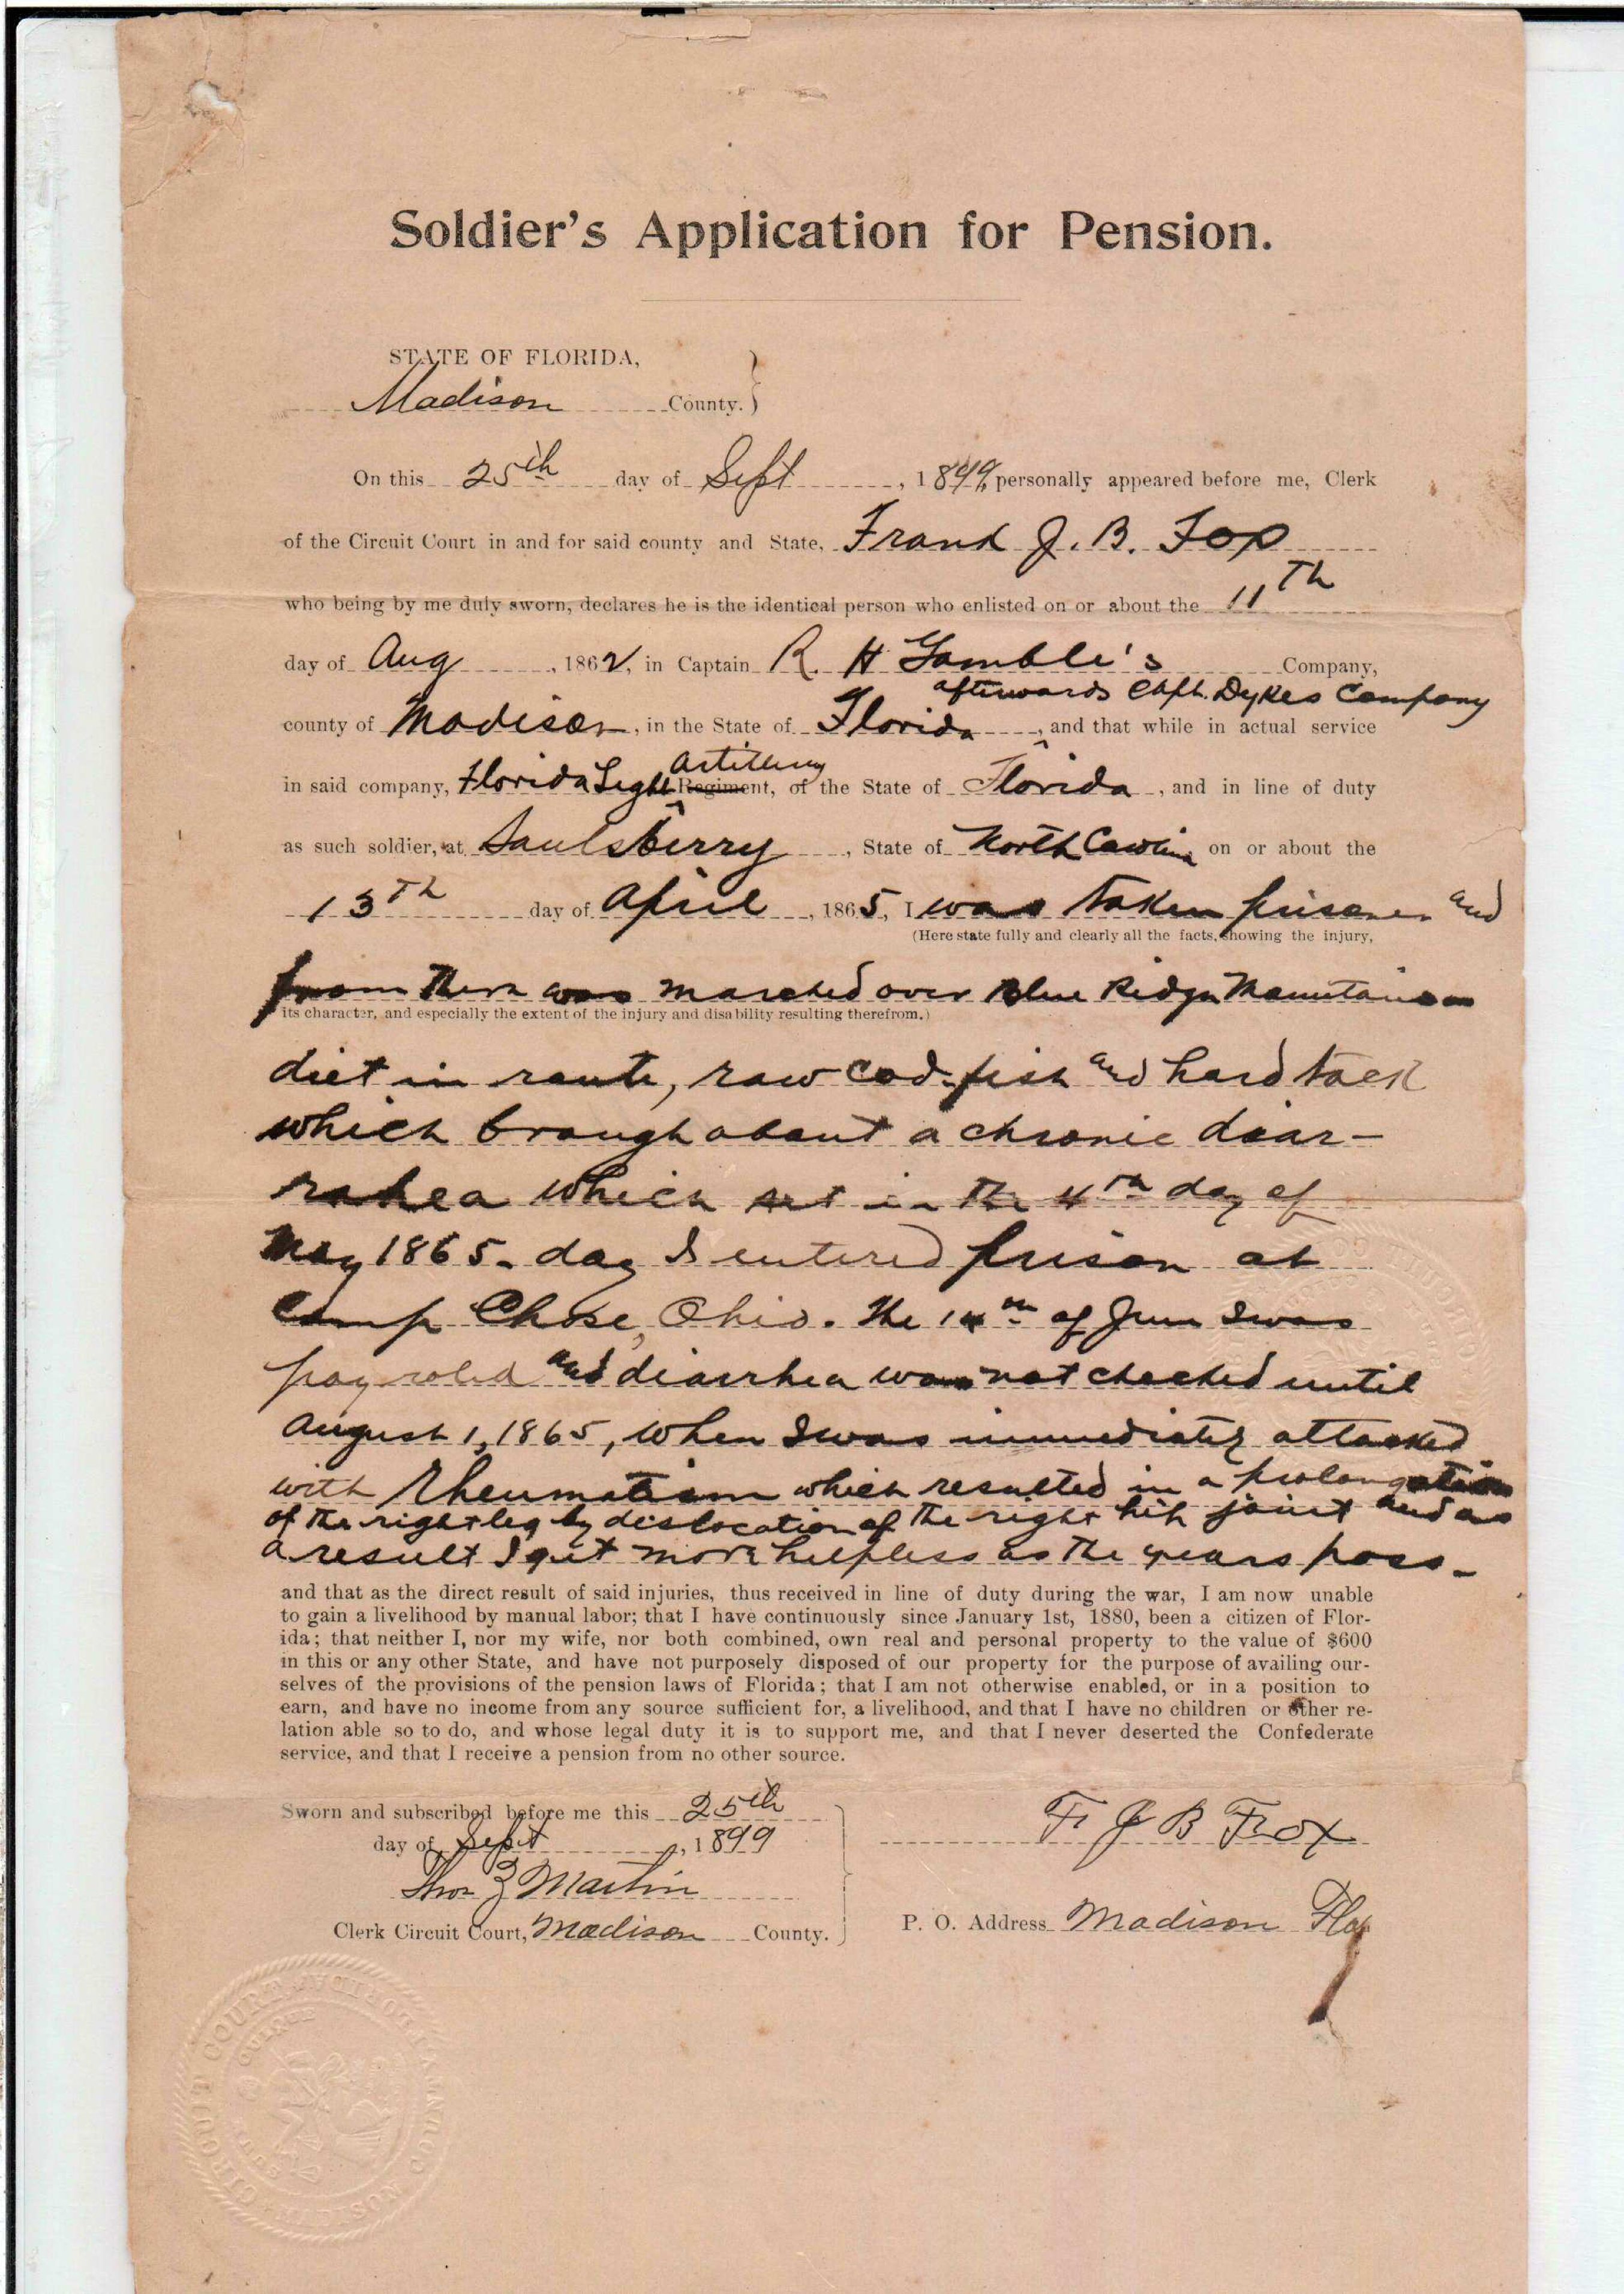 Soldier's Application for Pension.
STATE OF FLORIDA,
Madison County.
On this 25th day of Sept, 1899, personally appeared before me, Clerk
of the Circuit Court in and for said county and State, Frank J. B. Fox
who being by me duly sworn, declares he is the identical person who enlisted on or about the 11Th
day of Aug, 1862, in Captain R. H Gamble's Company,
afterwards Capt. Dykes Company
county of Madison, in the State of Florida, and that while in actual service
Artillery
in said company, Florida Light Regiment, of the State of Florida, and in line of duty
as such soldier, at Saulsberry, State of North Carolina on or about the
13Th day of April, 1865, I was taken prisoner and
(Here state fully and clearly all the facts, showing the injury,
from there was marched over Blue Ridge Mountains
its character, and especially the extent of the injury and disability resulting therefrom.)
diet in route, raw cod-fish and hard tack
which brough about a chronic diar-
rahea which set in the 4th day of
May 1865. day I entered prison at
Camp Chase, Ohio. The 14th of June I was
payroled and diarrhea was not checked until
August 1, 1865, when I was immediately attacked
with Rheumatism which resulted in a prolongation
of the right leg by dislocation of the right hip joint and as
a result I get more helpless as the years pass.
and that as the direct result of said injuries, thus received in line of duty during the war, I am now unable
to gain a livelihood by manual labor; that I have continuously since January 1st, 1880, been a citizen of Flor-
ida; that neither I, nor my wife, nor both combined, own real and personal property to the value of $600
in this or any other State, and have not purposely disposed of our property for the purpose of availing our-
selves of the provisions of the pension laws of Florida; that I am not otherwise enabled, or in a position to
earn, and have no income from any source sufficient for, a livelihood, and that I have no children or other re-
lation able so to do, and whose legal duty it is to support me, and that I never deserted the Confederate
service, and that I receive a pension from no other source.
Sworn and subscribed before me this 25th
day of Sept, 1899
Thos Z Martin
Clerk Circuit Court, Madison County.
Fr J B Fox
P. O. Address Madison Fla
CIRCUIT COURT
MADISON COUNTY
FLORIDA